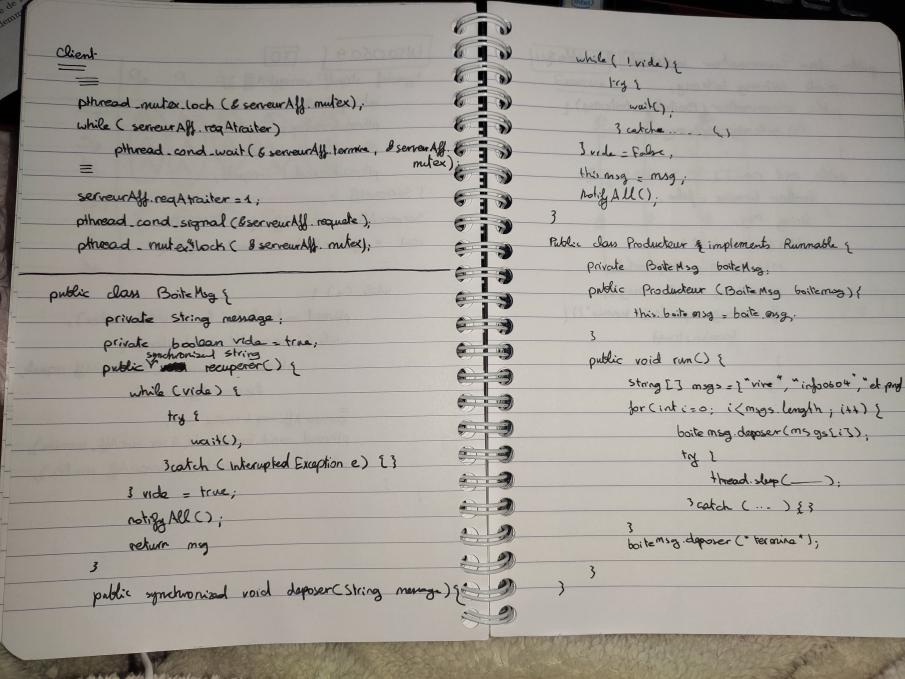 Client
pthread_mutex.lock (& serveurAff. mutex);
while ( serveurAff. reqAtraiter)
pthread_cond_wait( & serveurAff. termine, & serveurAff.
mutex);
serveurAff. reqAtraiter = 1;
pthread_cond_signal (& serveurAff. requete);
pthread_mutex lock ( & serveurAff. mutex);
public class BoiteMsg {
private String message;
private boolean vide = true;
synchronized string
public recuperer() {
while (vide) {
try {
wait();
} catch ( Interupted Exception e) { }
} vide = true;
notify All();
return msg
}
public synchronized void deposer( String message) {
while ( ! vide) {
try {
wait();
} catche ..... ( )
} vide = False,
this msg = msg;
notify All();
}
Public class Producteur implements Runnable {
private BoiteMsg boiteMsg;
public Producteur (BoiteMsg boitemsg) {
this. boite msg = boite. msg;
}
public void run() {
String [ ] msgs = { "vive", "info0604", "et
for ( int i=0; i < msgs. length ; i++) {
boite msg. deposer( msgs[i]);
try {
thread. sleep ( ___ );
} catch ( ... ) { }
}
boite Msg. deposer ( "termine" );
}
}